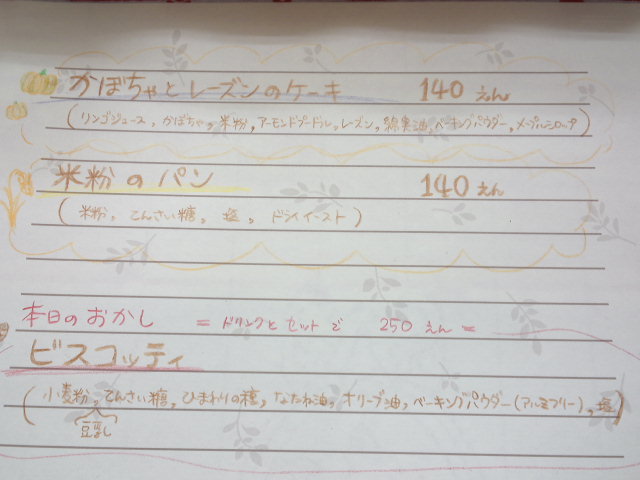 かぼちゃとレーズンのケーキ 140 えん
(リンゴジュース, かぼちゃ, 米粉, アーモンドプードル, レーズン, 綿実油, ベーキングパウダー, メープルシロップ)
米粉のパン 140 えん
(米粉, てんさい糖, 塩, ドライイースト)
本日のおかし = ドリンクとセットで 250 えん =
ビスコッティ
(小麦粉, てんさい糖, ひまわりの種, なたね油, オリーブ油, ベーキングパウダー(アルミフリー), 塩)
豆乳